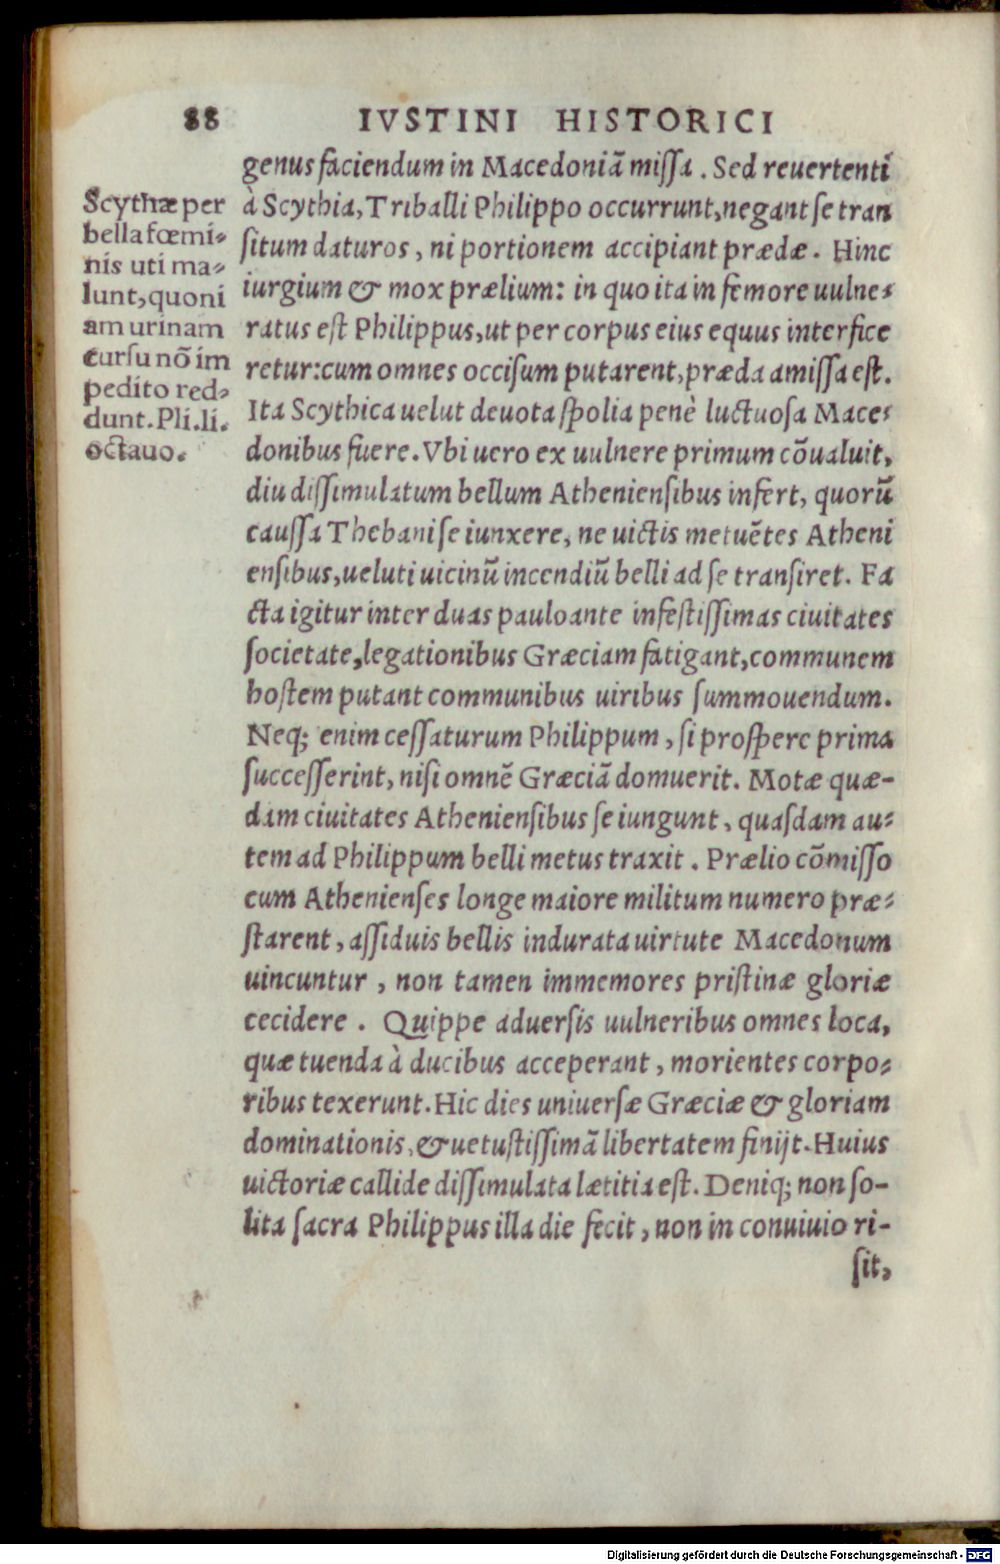 88 IVSTINI HISTORICI
genus faciendum in Macedoniã missa. Sed reuertenti
à Scythia, Triballi Philippo occurrunt, negant se tran
situm daturos, ni portionem accipiant prædæ. Hinc
iurgium & mox prælium: in quo ita in femore uulne-
ratus est Philippus, ut per corpus eius equus interfice
retur: cum omnes occisum putarent, præda amissa est.
Ita Scythica uelut deuota spolia penè luctuosa Mace-
donibus fuere. Vbi uero ex uulnere primum cõualuit,
diu dissimulatum bellum Atheniensibus infert, quorũ
caussa Thebani se iunxere, ne uictis metuẽtes Atheni
ensibus, ueluti uicinũ incendiũ belli ad se transiret. Fa
cta igitur inter duas pauloante infestissimas ciuitates
societate, legationibus Græciam fatigant, communem
hostem putant communibus uiribus summouendum.
Neq; enim cessaturum Philippum, si prospere prima
successerint, nisi omnẽ Græciã domuerit. Motæ quæ-
dam ciuitates Atheniensibus se iungunt, quasdam au-
tem ad Philippum belli metus traxit. Prælio cõmisso
cum Athenienses longe maiore militum numero præ-
starent, assiduis bellis indurata uirtute Macedonum
uincuntur, non tamen immemores pristinæ gloriæ
cecidere. Quippe aduersis uulneribus omnes loca,
quæ tuenda à ducibus acceperant, morientes corpo-
ribus texerunt. Hic dies uniuersæ Græciæ & gloriam
dominationis, & uetustissimã libertatem finijt. Huius
uictoriæ callide dissimulata lætitia est. Deniq; non so-
lita sacra Philippus illa die fecit, non in conuiuio ri-
sit,
Scythæ per
bella fœmi-
nis uti ma-
lunt, quoni
am urinam
cursu nõ im
pedito red-
dunt. Pli. li.
octauo.
Digitalisierung gefördert durch die Deutsche Forschungsgemeinschaft - DFG